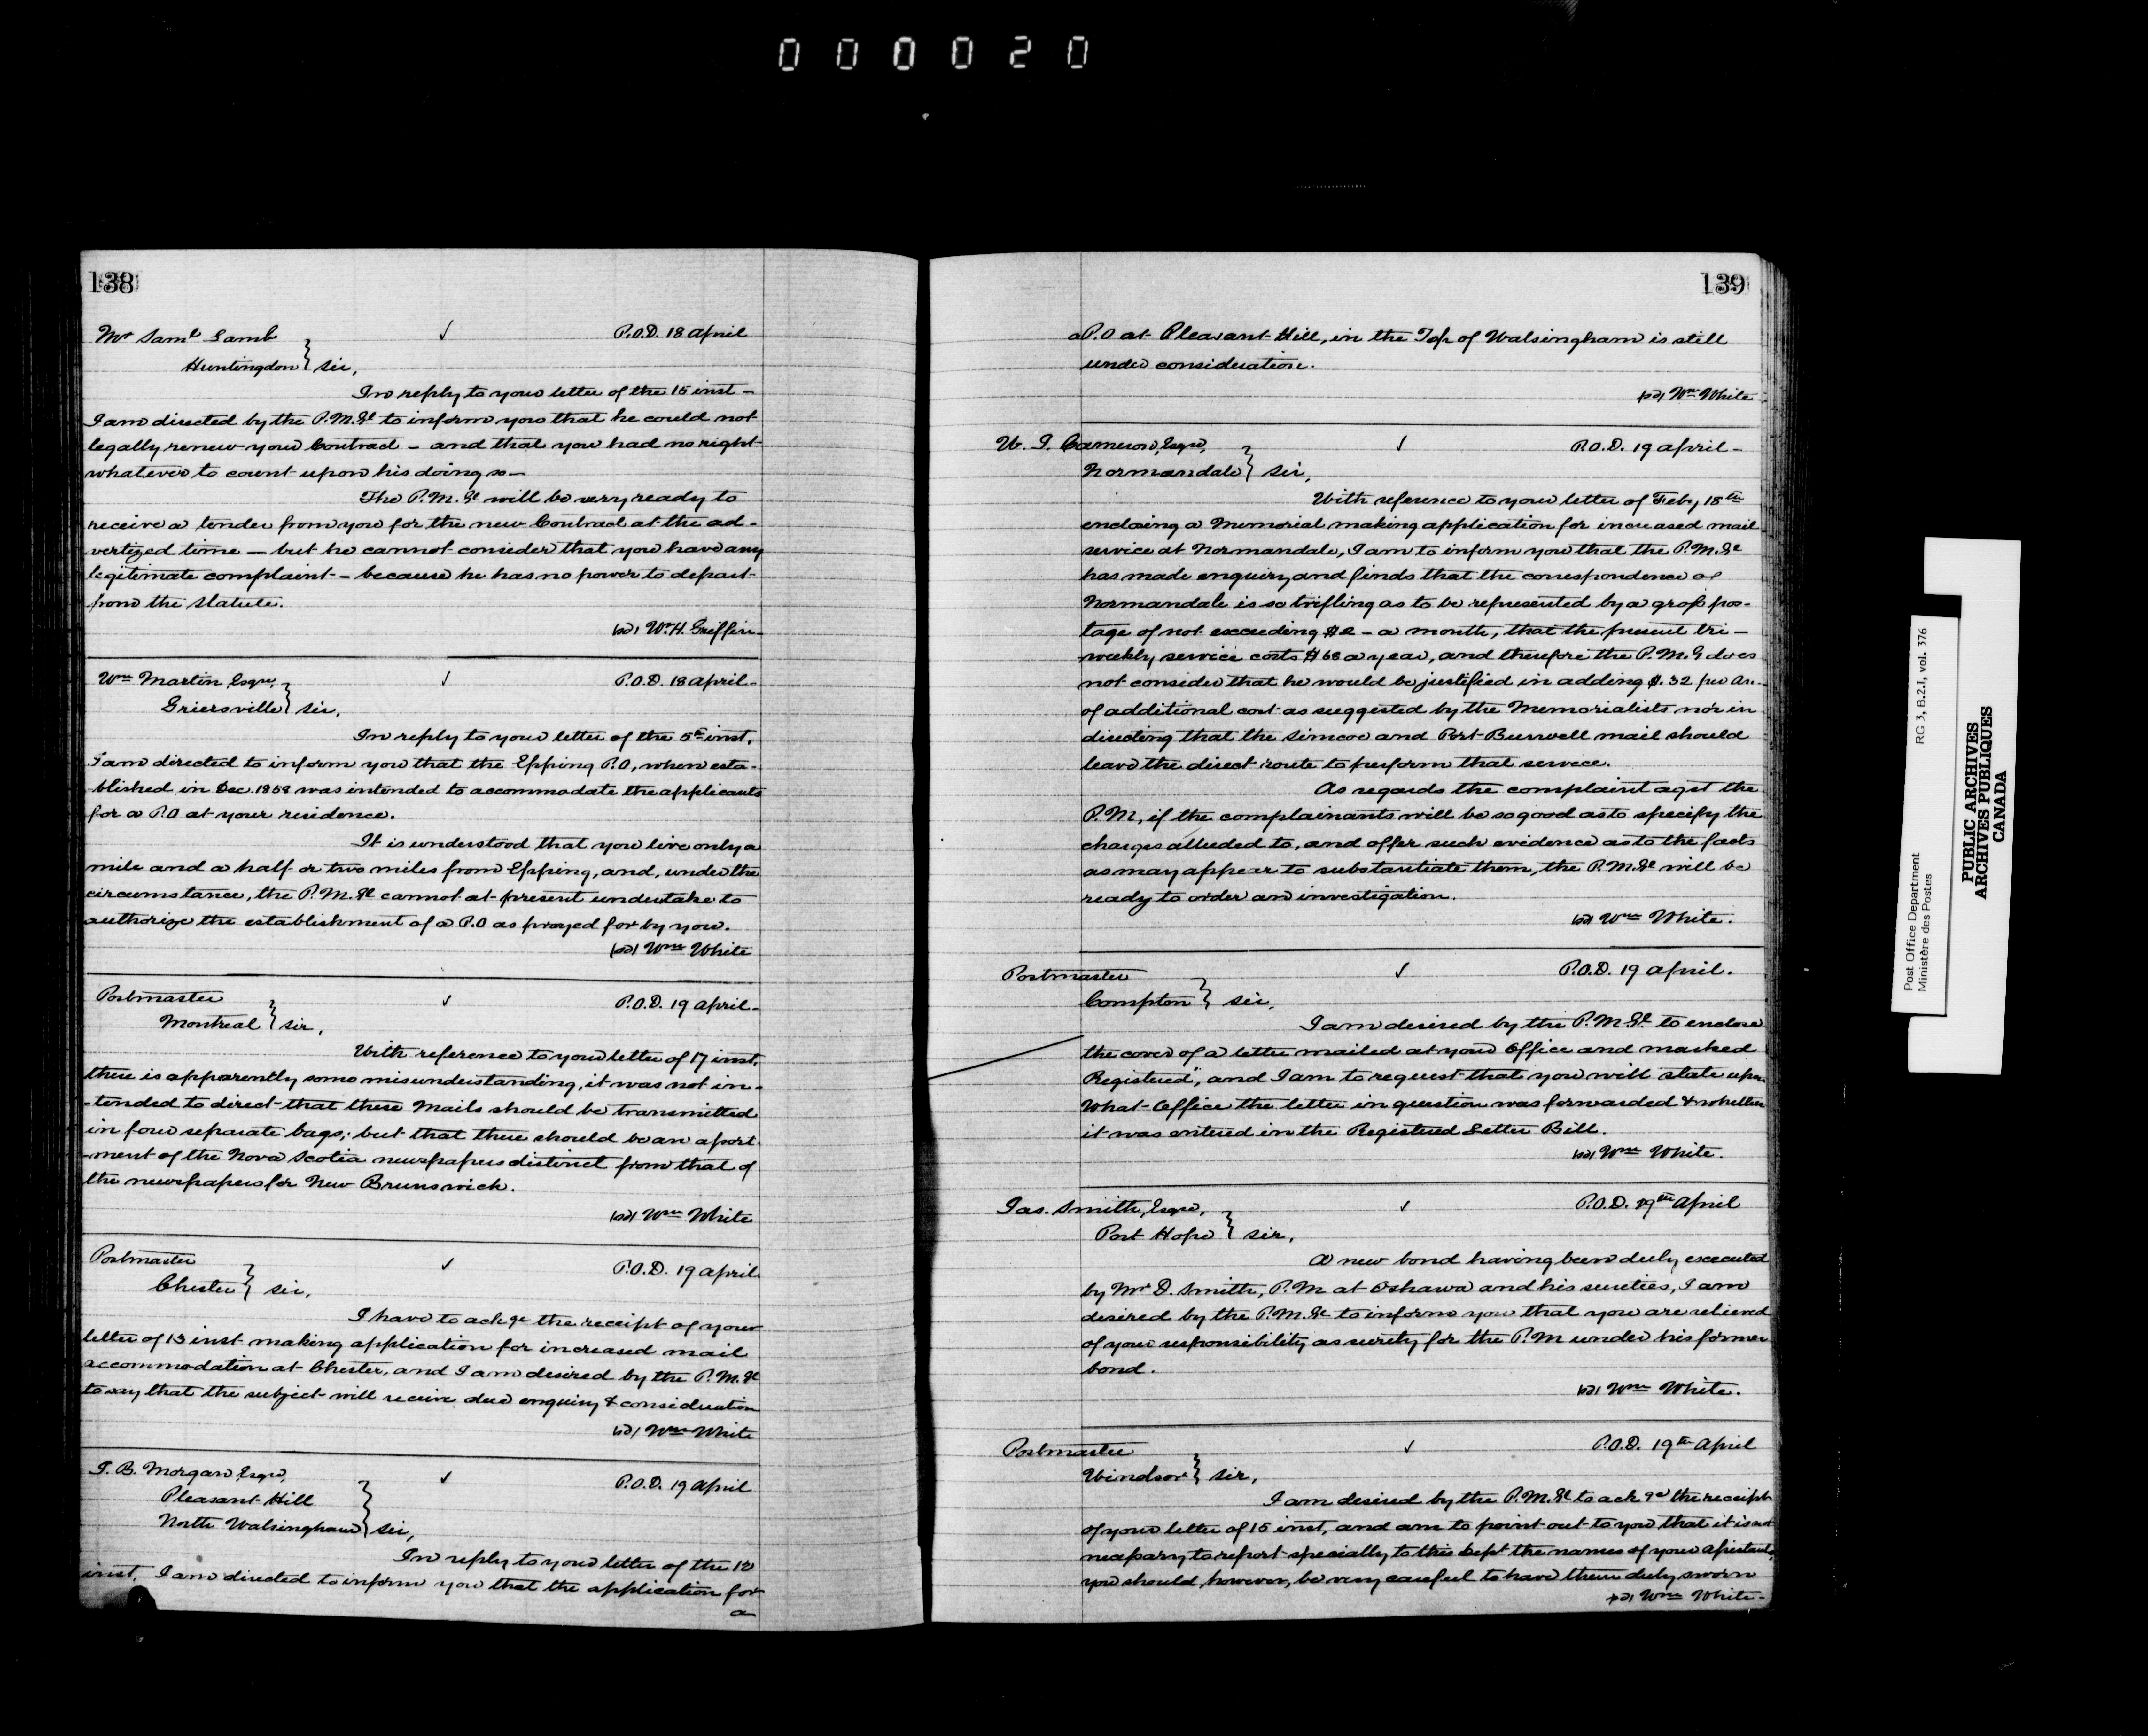 000020
138
Mr Saml Lamb ✓ P.O.D. 18 April
Huntingdon } Sir,
In reply to your letter of the 15 inst –
I am directed by the P.M.Gl to inform you that he could not
legally renew your Contract – and that you had no right
whatever to count upon his doing so –
The P.M.Gl will be very ready to
receive a tender from you for the new Contract at the ad-
vertized time – but he cannot consider that you have any
legitimate complaint – because he has no power to depart
from the Statute.
(sd) W.H. Griffin
Wm Martin, Esqre, ✓ P.O.D. 18 April –
Griersville } Sir,
In reply to your letter of the 5th inst.
I am directed to inform you that the Epping P.O, when esta-
blished in Dec. 1858 was intended to accommodate the applicants
for a P.O at your residence.
It is understood that you live only a
mile and a half or two miles from Epping, and, under the
circumstance, the P.M.Gl cannot at present undertake to
authorize the establishment of a P.O as prayed for by you.
(sd) Wm White
Postmaster ✓ P.O.D. 19 April –
Montreal } Sir,
With reference to your letter of 17 inst.
there is apparently some misunderstanding, it was not in-
-tended to direct that these Mails should be transmitted
in four separate bags; but that there should be an apart-
-ment of the Nova Scotia newspapers distinct from that of
the newspapers for New Brunswick.
(sd) Wm White
Postmaster ✓ P.O.D. 19 April
Chester } Sir,
I have to ackge the receipt of your
letter of 13 inst making application for increased mail
accommodation at Chester, and I am desired by the P.M.Gl
to say that the subject will receive due enquiry & consideration
(sd) Wm White
J. B. Morgan, Esqre, ✓ P.O.D. 19 April
Pleasant Hill
North Walsingham } Sir,
In reply to your letter of the 12
inst. I am directed to inform you that the application for
a
139
a P.O at Pleasant Hill, in the Tsp of Walsingham is still
under consideration.
(sd) Wm White
W. J. Cameron, Esqre, ✓ P.O.D. 19 April –
Normandale } Sir,
With reference to your letter of Feby 18th
enclosing a Memorial making application for increased mail
service at Normandale, I am to inform you that the P.M.Gl
has made enquiry and finds that the correspondence of
Normandale is so trifling as to be represented by a gross pos-
tage of not exceeding $2 – a month, that the present tri –
weekly service costs $68 a year, and therefore the P.M.G does
not consider that he would be justified in adding $.32 per an.
of additional cost as suggested by the Memorialists nor in
directing that the Simcoe and Port Burwell mail should
leave the direct route to perform that service.
As regards the complaint agst the
P.M, if the complainants will be so good as to specify the
charges alluded to, and offer such evidence as to the facts
as may appear to substantiate them, the P.M.Gl will be
ready to order an investigation.
(sd) Wm White.
Postmaster ✓ P.O.D. 19 April.
Compton } Sir,
I am desired by the P.M.Gl to enclose
the cover of a letter mailed at your Office and marked
Registered", and I am to request that you will state upon
What Office the letter in question was forwarded & whether
it was entered in the Registered Letter Bill.
(sd) Wm White.
Jas. Smith, Esqre, ✓ P.O.D. 19th April
Port Hope } Sir,
A new bond having been duly executed
by Mr D. Smith, P.M at Oshawa and his sureties, I am
desired by the P.M.Gl to inform you that you are relieved
of your responsibility as surety for the P.M under his former
bond.
(sd) Wm White.
Postmaster ✓ P.O.D. 19th April
Windsor } Sir,
I am desired by the P.M.Gl to ackge the receipt
of your letter of 15 inst, and am to point out to you that it is not
necessary to report specially to this Dept the names of your Assistants,
you should, however, be very careful to have them duly sworn
(sd) Wm White –
Post Office Department RG 3, B.2.I, vol. 376
Ministère des Postes
PUBLIC ARCHIVES
ARCHIVES PUBLIQUES
CANADA